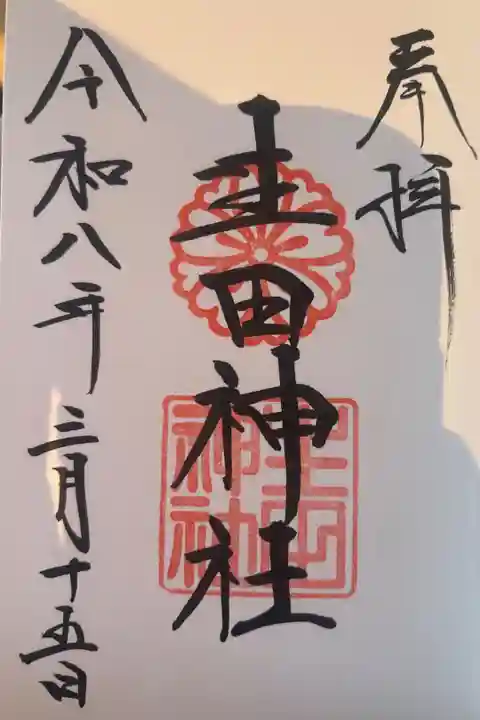 奉拝
生田神社
生田神社
令和八年三月十五日